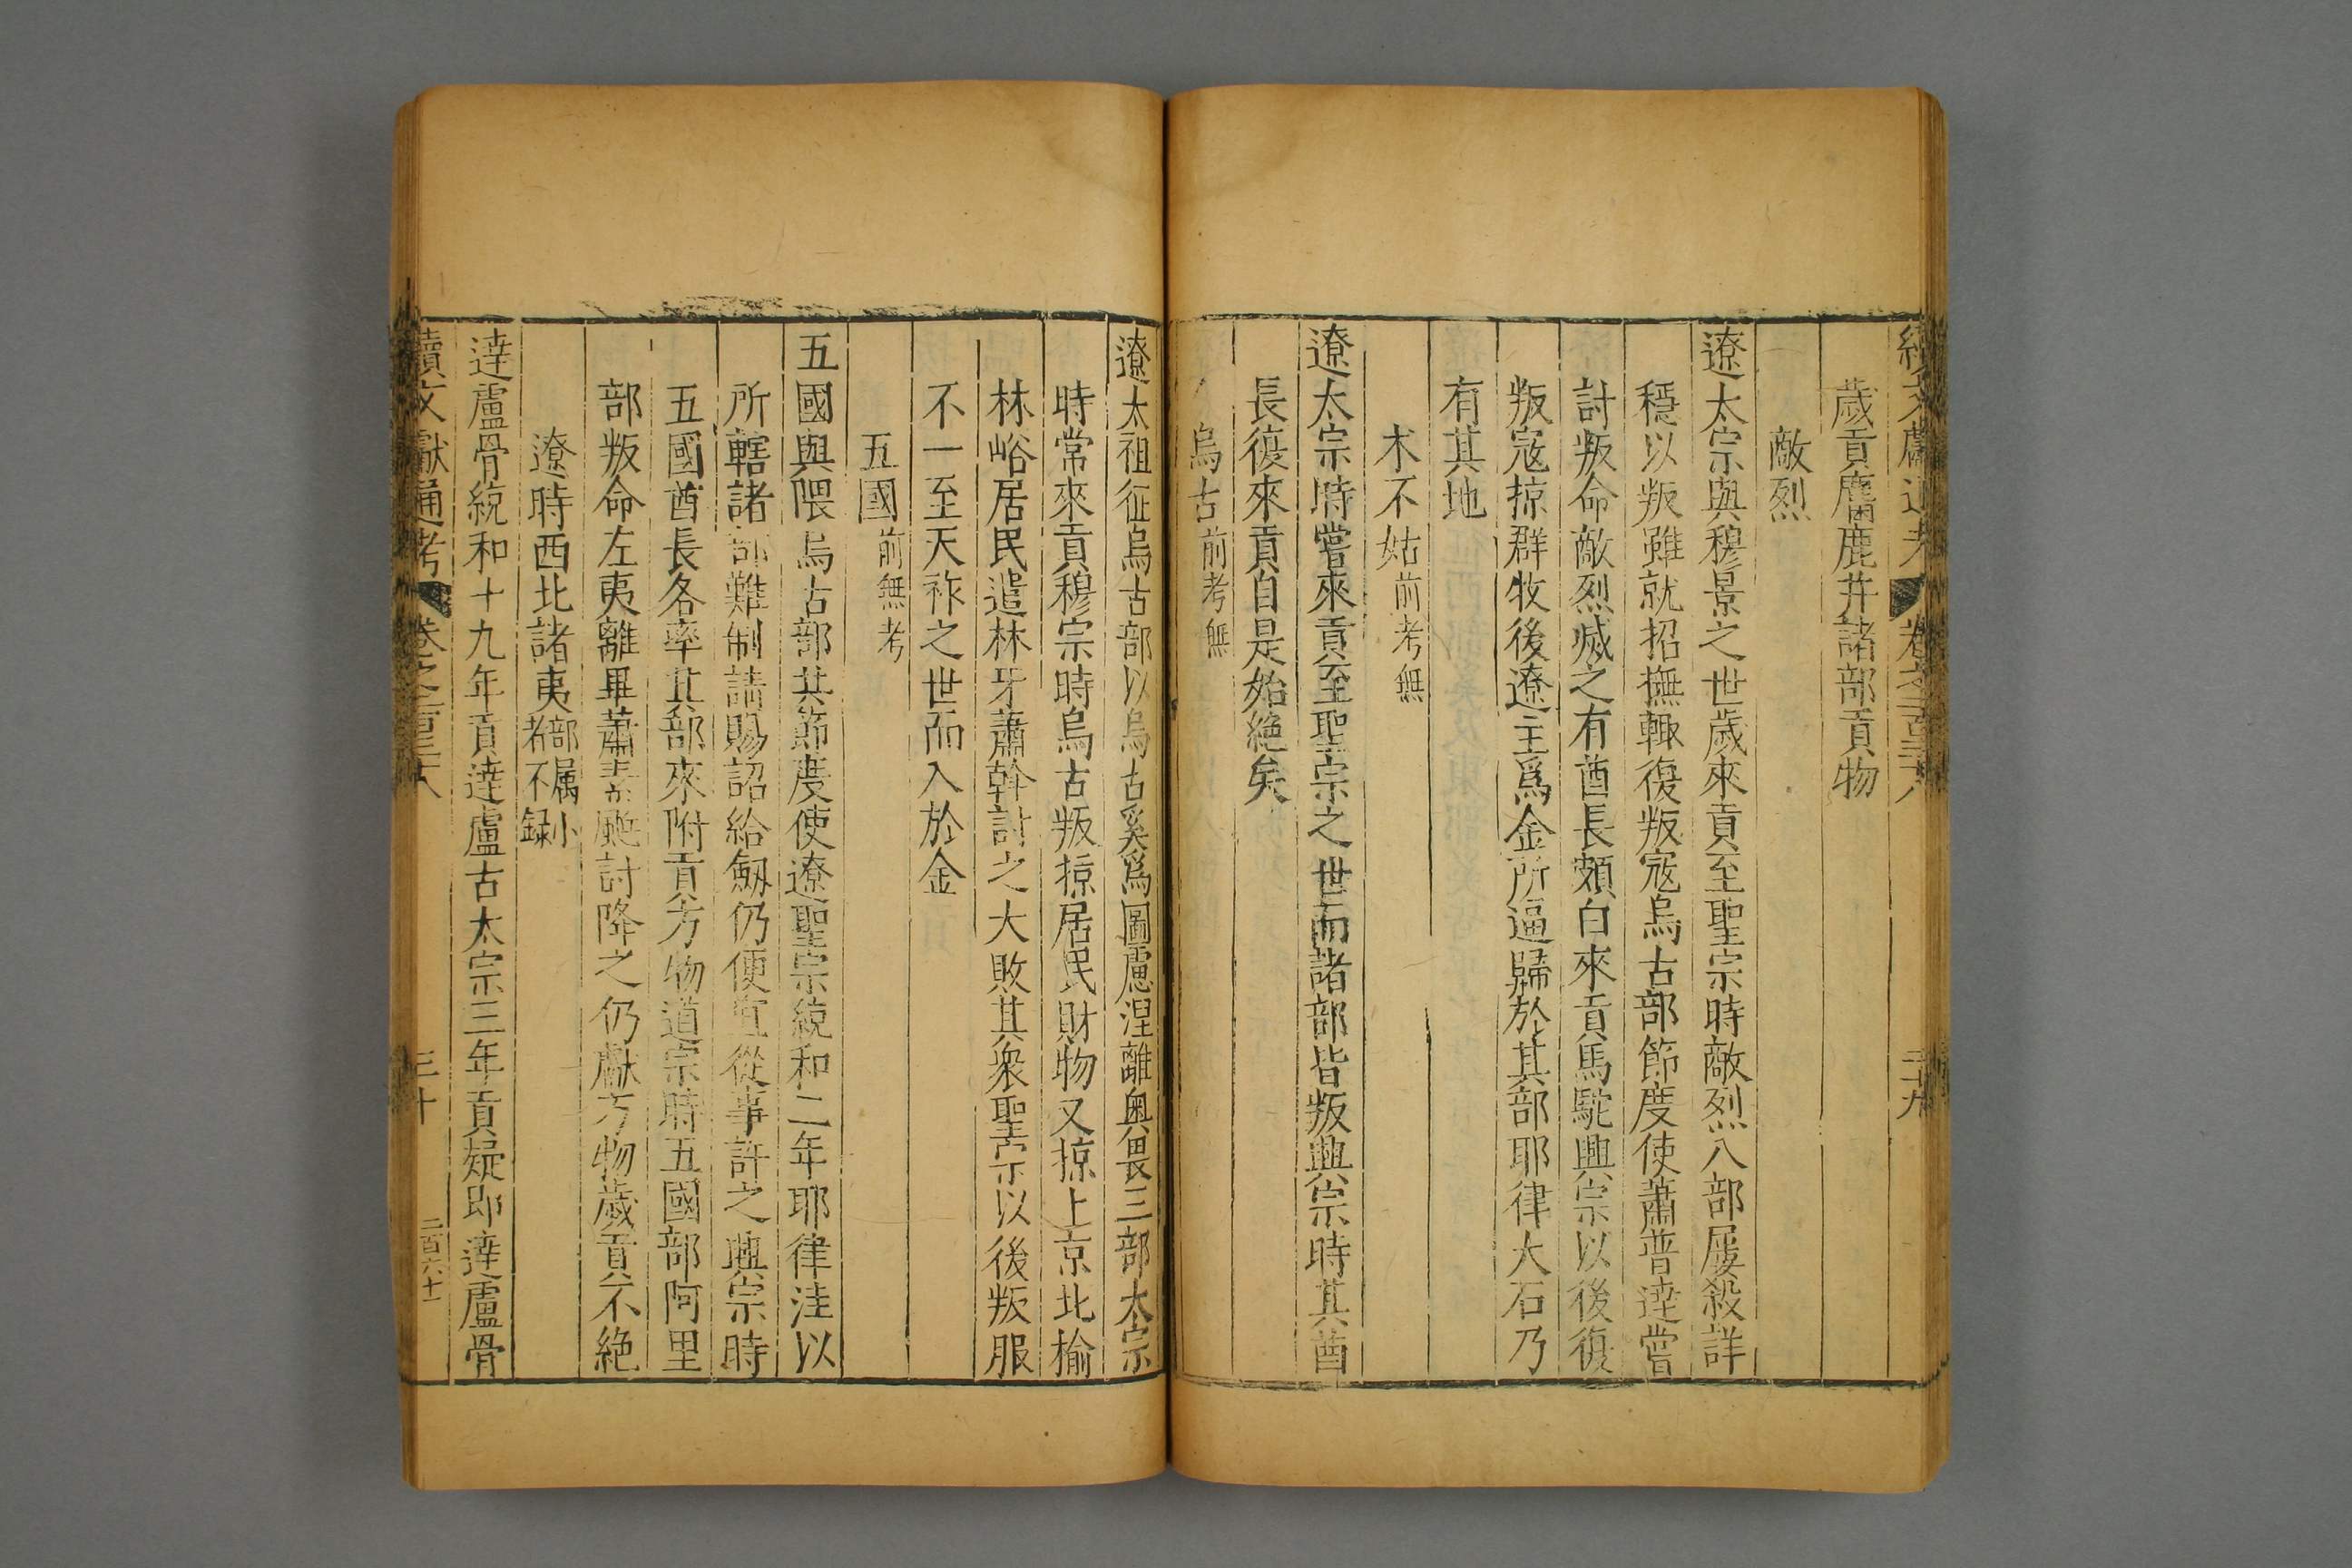 歲貢麕鹿并諸部貢物
敵烈
遼太宗與穆景之世歲來貢至聖宗時敵烈八部屢殺詳
穩以叛雖就招撫輒復叛寇烏古部節度使蕭普達嘗
討叛命敵烈滅之有酋長頗白來貢馬駝興宗以後復
叛寇掠群牧後遼主爲金所逼歸於其部耶律大石乃
有其地
术不姑前考無
遼太宗時嘗來貢至聖宗之世而諸部皆叛興宗時其酋
長復來貢自是始絶矣
烏古前考無
遼太祖征烏古部以烏古奚爲圖慮涅離奧畏三部太宗
時常來貢穆宗時烏古叛掠居民財物又掠上京北榆
林峪居民遣林牙蕭幹討之大敗其衆聖宗以後叛服
不一至天祚之世而入於金
五國前無考
五國與隈烏古部其節度使遼聖宗統和二年耶律洼以
所轄諸部難制請賜詔給劔仍便宜從事許之興宗時
五國酋長各率其部來附貢方物道宗時五國部阿里
部叛命左夷離畢蕭素颭討降之仍獻方物歲貢不絶
遼時西北諸夷部属小者不録
達盧骨統和十九年貢達盧古太宗三年貢疑即達盧骨
續文獻通考 卷之二百三十八 三十 二百六十一